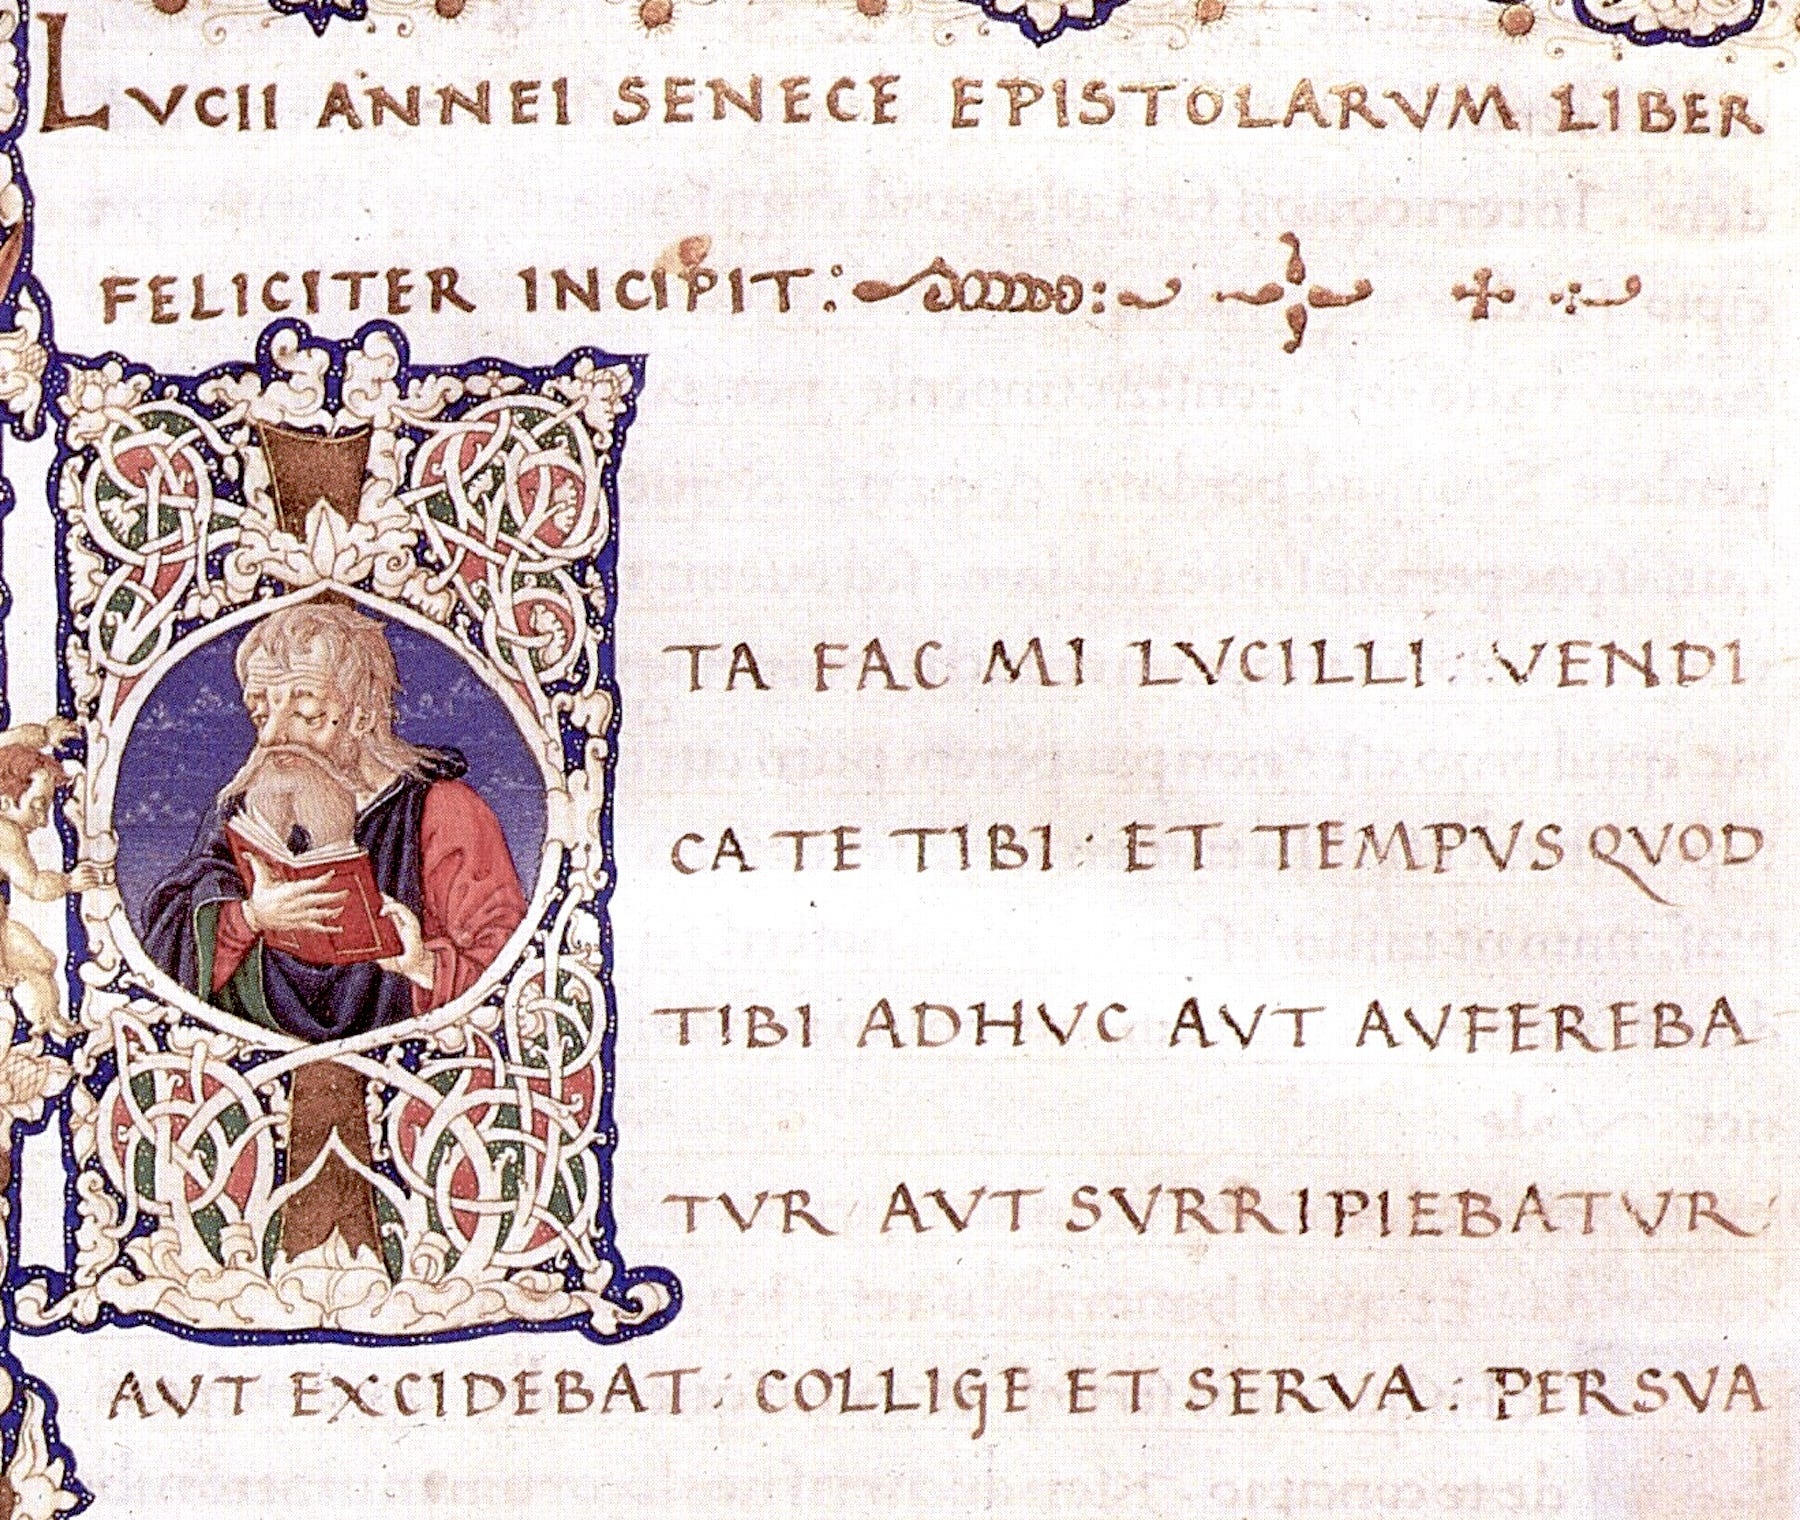 LVCII ANNEI SENECE EPISTOLARVM LIBER
FELICITER INCIPIT:
ITA FAC MI LVCILLI: VENDI
CA TE TIBI: ET TEMPVS QVOD
TIBI ADHVC AVT AVFEREBA
TVR AVT SVRRIPIEBATVR:
AVT EXCIDEBAT: COLLIGE ET SERVA: PERSVA